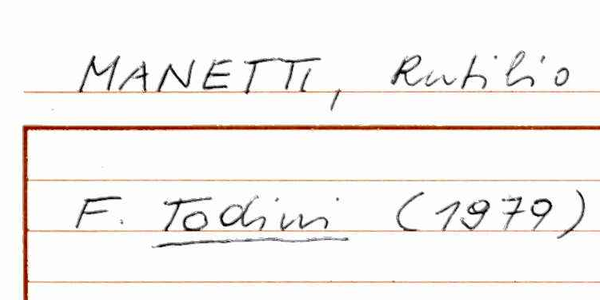 MANETTI, Rutilio
F. Todini (1979)